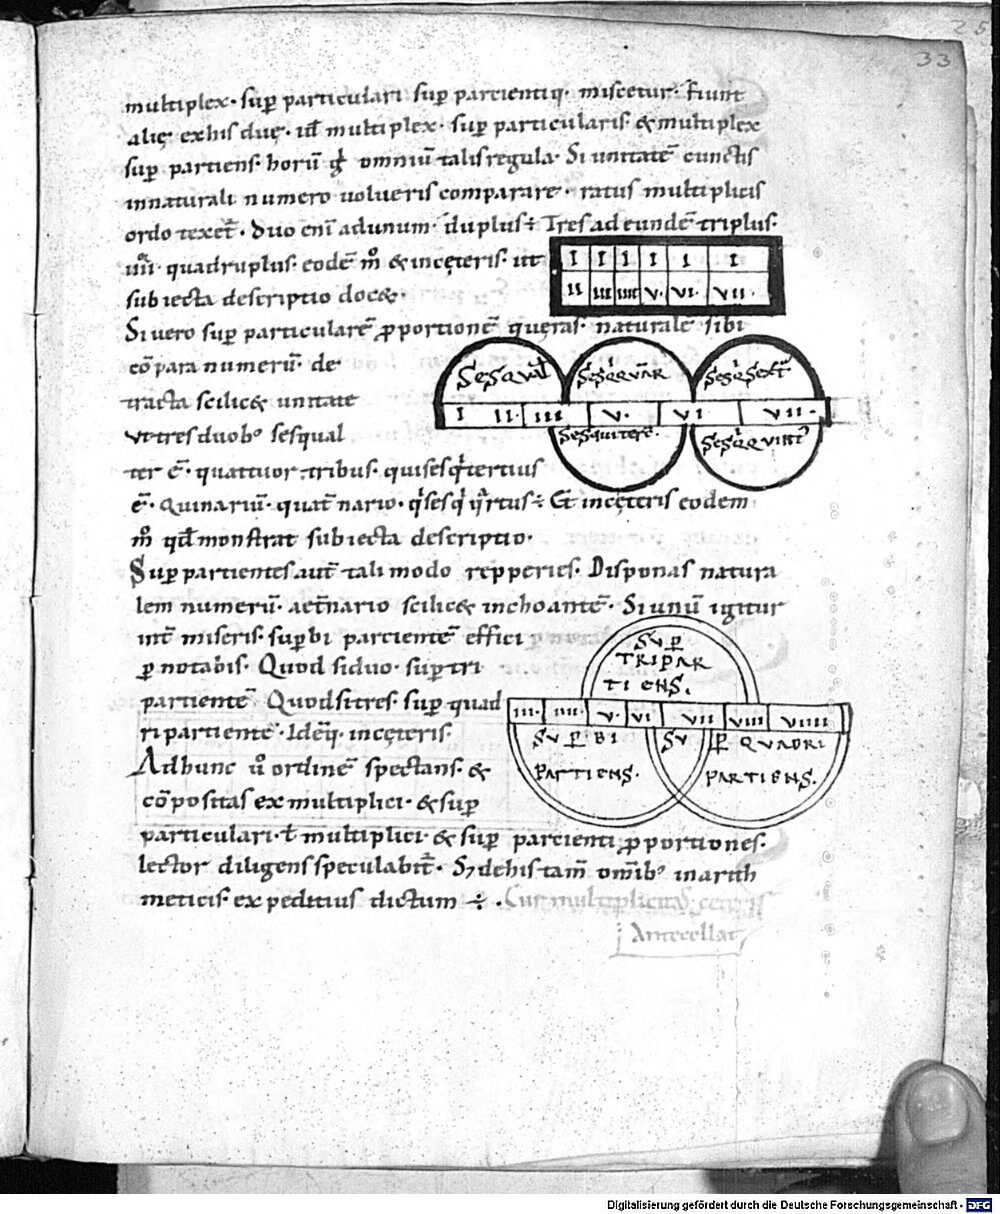 25
33
multiplex· sup̄ particulari sup̄ parcientiq· miscetur· Fiunt
alię exhis duę· ul̄ multiplex· sup̄ particularis· & multiplex
sup̄ partiens· horū g̊ omniū talis regula· Si unitatē cunctis
innaturali numero uolueris comparare· ratus multiplicis
ordo texet̄· Duo eni adunum· duplus÷ Tres ad eundē triplus·
quadruplus· eodē m̊ & incęteris· ut
subiecta descriptio doc&·
I I I I I I
II III IIII V· VI· VII·
Si vero sup̄ particularē p̄portionē quęras· naturalē sibi
cōpara numerū· de
tracta scilic& unitate
ut tres duob; sesqual
ter ē· quattuor tribus· qui sesq̇tertius
ē· Quinariū· quat̄ nario· q̇sesq̇ q̇rtus÷ Et incęteris eodem
m̊ qd̄ monstrat subiecta descriptio·
SeSqual̄ SeSq̇quar SeSq̇Sext̄
I II· III V· VI VII·
SeSquiterc̄· SeSq̇quint̄
Sup̄ partientes aut̄ tali modo repperies· Disponas natura
lem numerū· a et̄nario scilic& inchoantē· Si unū igitur
int̄ miseris· sup̄bi parcientē effici
p̄ notabis· Quod si duo· sup̄tri
partientē Quod si tres· sup̄ quad
ripartientē· Idēq· incęteris·
SVP̄
TRIPAR
TIENS·
III· IIII· V· VI VII VIII VIIII
SVP̄ BI SVP̄ QVADRI
PARTIENS· PARTIENS·
Ad hunc u̇ ordinē spectans· &
cōpositas ex multiplici· & sup̄
particulari· t̄ multiplici· & sup̄ parcienti p̄portiones·
lector diligens speculabit̄· S; de his tam̄ omīb; inarith
meticis· expeditius dictum ÷ · Cur multiplicitas
Antecellat
Digitalisierung gefördert durch die Deutsche Forschungsgemeinschaft - DFG